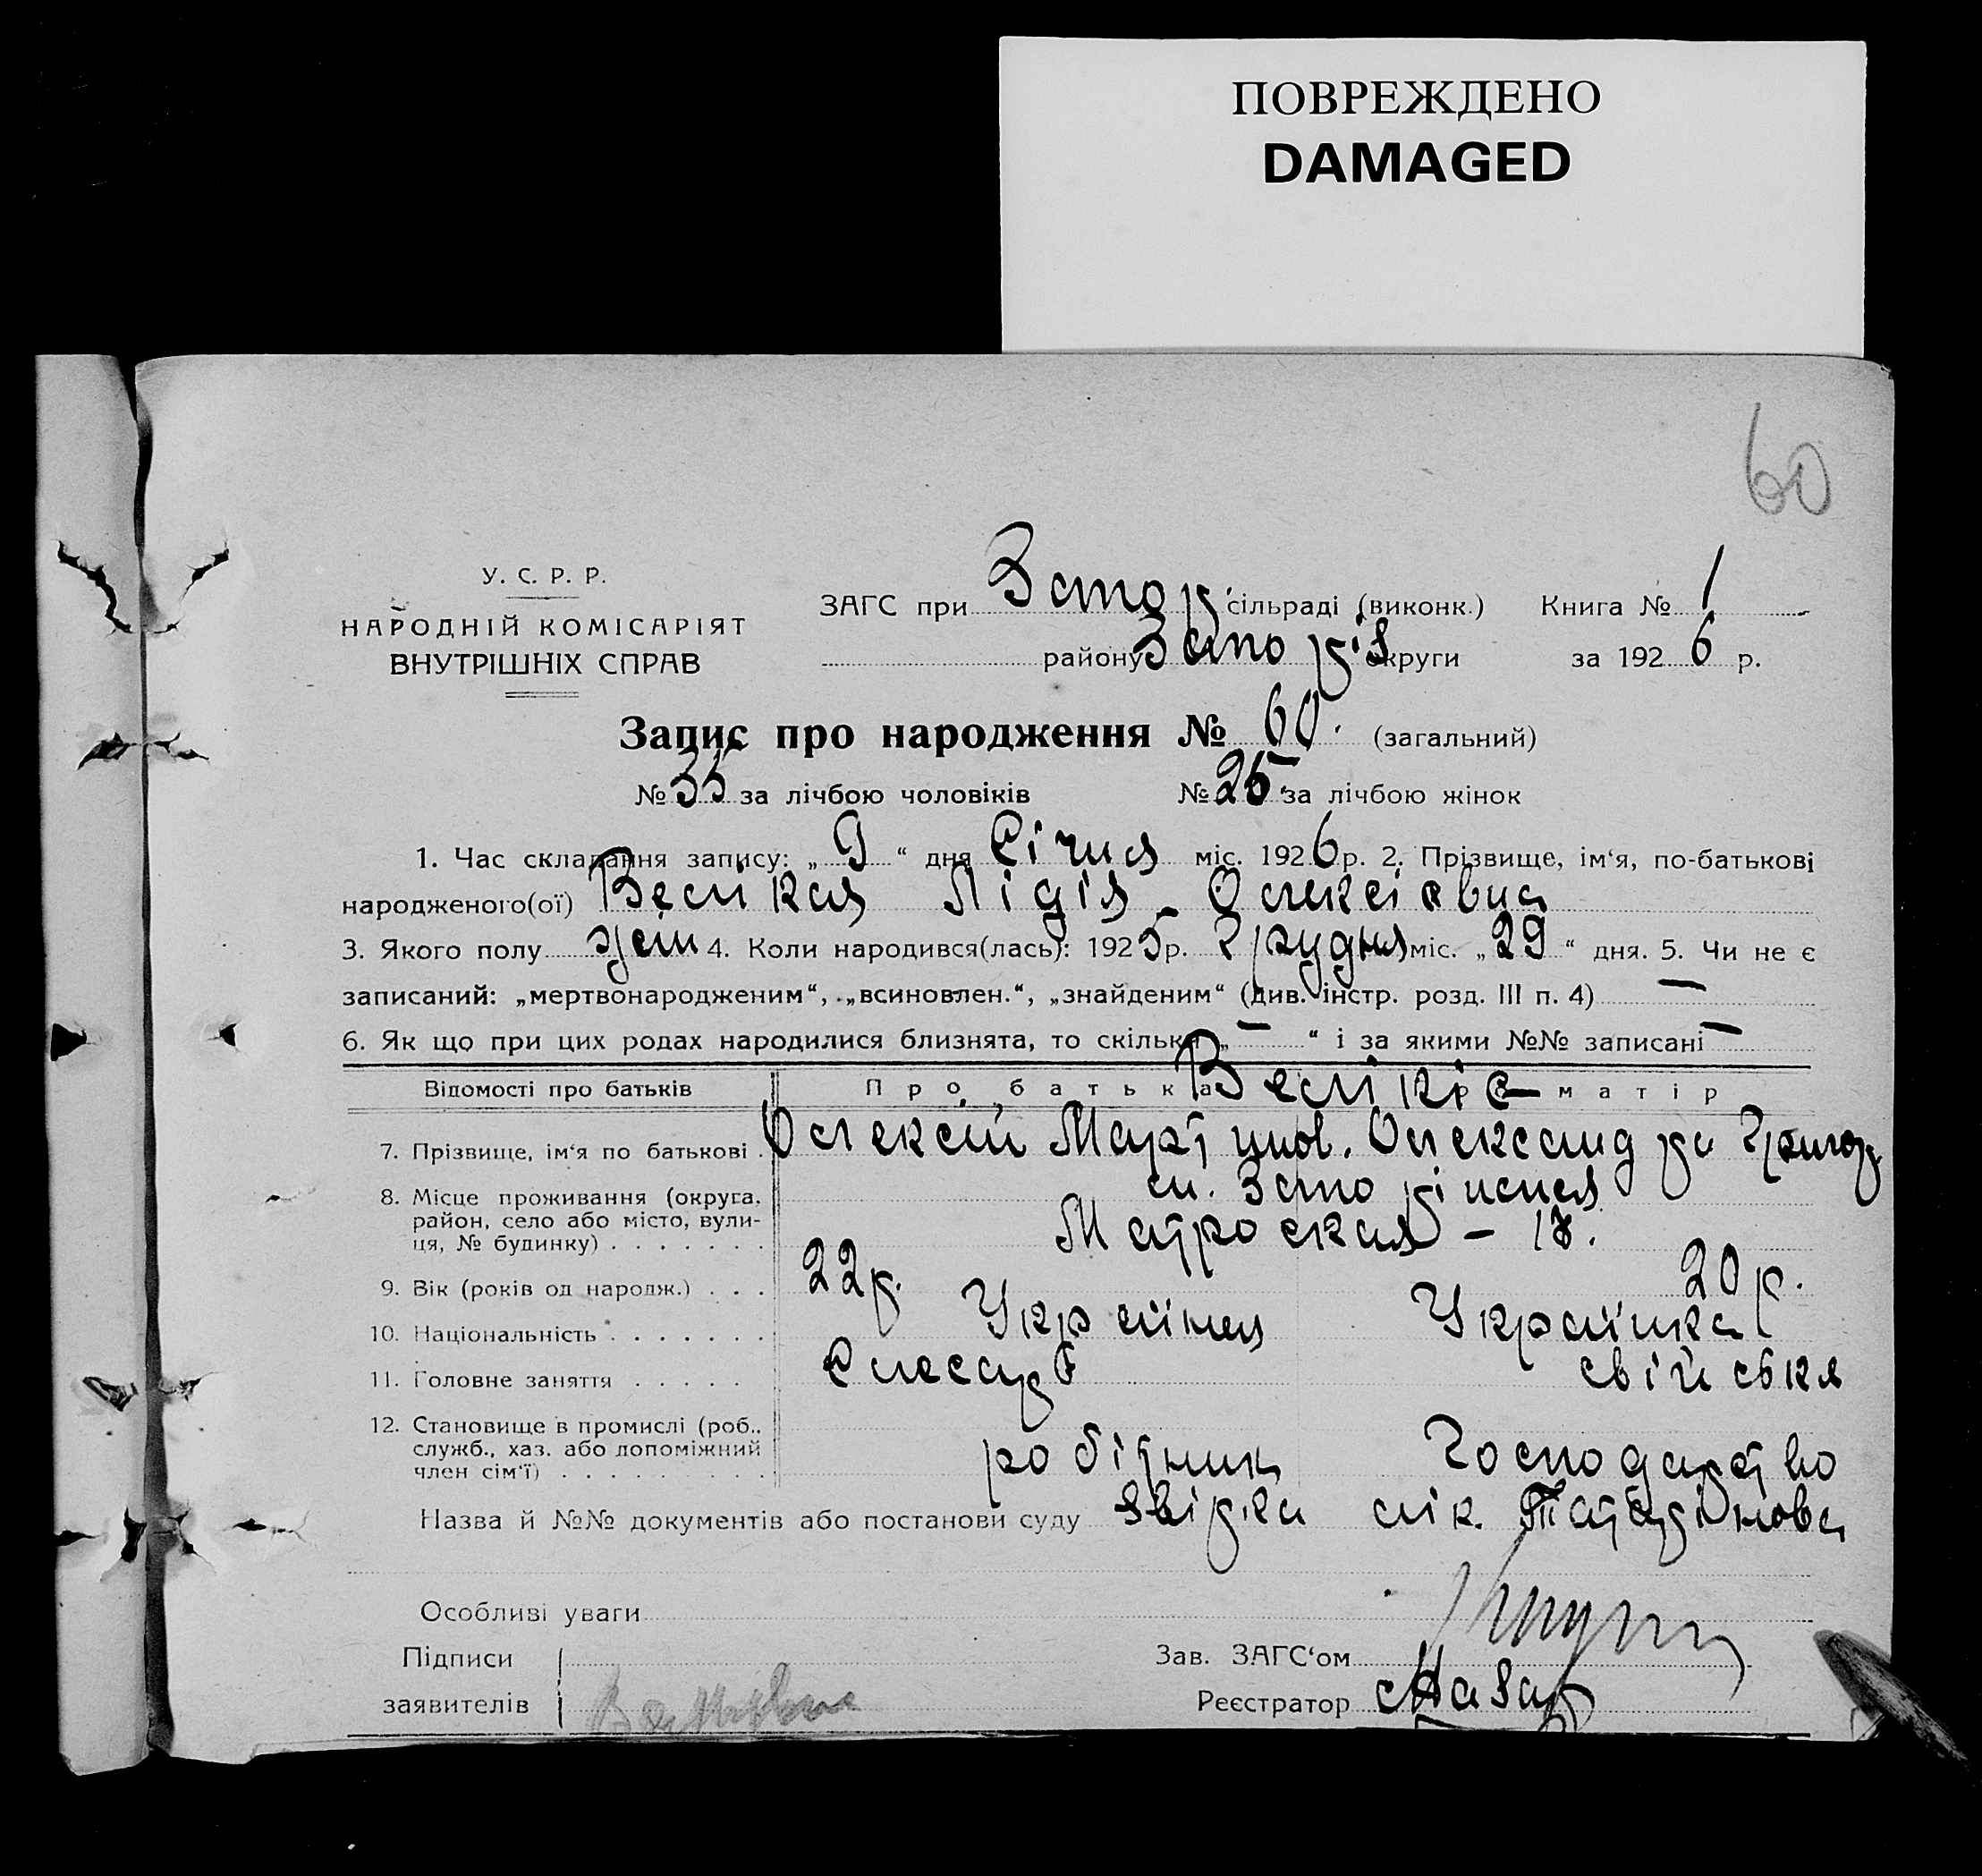 ПОВРЕЖДЕНО
DAMAGED
60
У. С. Р. Р.
НАРОДНІЙ КОМІСАРІЯТ
ВНУТРІШНІХ СПРАВ
ЗАГС при Запор. сільраді (виконк.) Книга № 1
району Запоріз округи за 1926 р.
Запис про народження № 60. (загальний)
№ 35 за лічбою чоловіків № 25 за лічбою жінок
1. Час складання запису: „ 9 “ дня Січня міс. 1926 р. 2. Прізвище, ім‘я, по-батькові
народженого(ої) Велікая Лідія Олексіевна
3. Якого полу жен 4. Коли народився(лась): 1925 р. Грудня міс. „ 29 “ дня. 5. Чи не є
записаний: „мертвонародженим“, „всиновлен.“, „знайденим“ (див. інстр. розд. III п. 4) —
6. Як що при цих родах народилися близнята, то скільки „ — “ і за якими №№ записані —
Відомості про батьків Про батька Велікіє матір
7. Прізвище, ім‘я по батькові . Олексій Мартинов. Олександра Григор.
8. Місце проживання (округа, район, село або місто, вули-ця, № будинку) . . . . . . . м. Запоріжжя
Матроская – 18.
9. Вік (років од народж.) . . . 22р. 20р.
10. Національність . . . . . . . Українец Українка
11. Головне заняття . . . . . Слесарь свійська
12. Становище в промислі (роб., служб., хаз. або допоміжний член сім‘ї) . . . . . . . . . робітник господарство
Назва й №№ документів або постанови суду Звідка лік.
Особливі уваги
Підписи
заявителів
Зав. ЗАГС‘ом
Реєстратор Назар